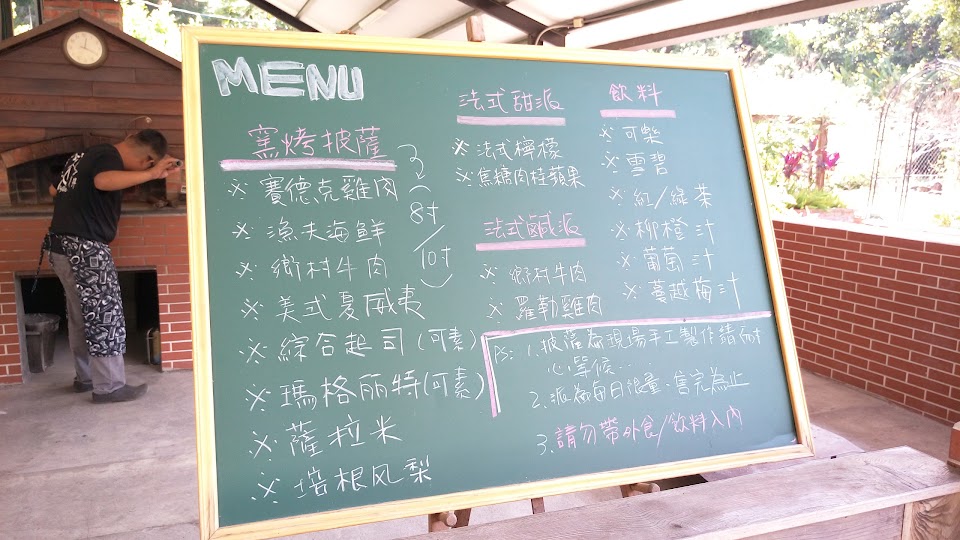 MENU
窯烤披薩
(8寸/10寸)
※ 賽德克雞肉
※ 漁夫海鮮
※ 鄉村牛肉
※ 美式夏威夷
※ 綜合起司(可素)
※ 瑪格丽特(可素)
※ 薩拉米
※ 培根风梨
法式甜派
※ 法式檸檬
※ 焦糖肉桂蘋果
法式鹹派
※ 鄉村牛肉
※ 羅勒雞肉
飲料
※ 可樂
※ 雪碧
※ 紅/綠茶
※ 柳橙汁
※ 葡萄汁
※ 蔓越梅汁
PS: 1.披薩為現場手工製作請耐
心等候..
2.派為每日限量,售完為止
3.請勿帶外食/飲料入內